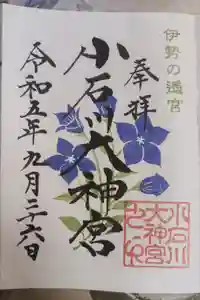 伊勢の遙宮
奉拝
小石川大神宮
令和五年九月二十六日
小石川
大神宮